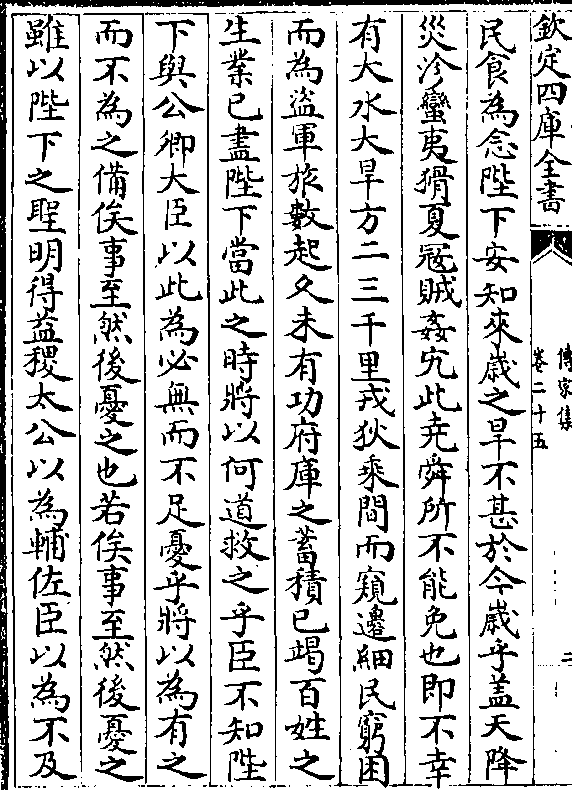 欽定四庫全書
傳家集
卷二十五
二
民食為念陛下安知來歲之旱不甚於今歲乎蓋天降
災沴蠻夷猾夏冦賊姦宄此堯舜所不能免也即不幸
有大水大旱方二三千里戎狄乘間而窺邊細民窮困
而為盜軍旅數起久未有功府庫之蓄積已竭百姓之
生業已盡陛下當此之時將以何道救之乎臣不知陛
下與公卿大臣以此為必無而不足憂乎將以為有之
而不為之備俟事至然後憂之也若俟事至然後憂之
雖以陛下之聖明得益稷太公以為輔佐臣以為不及